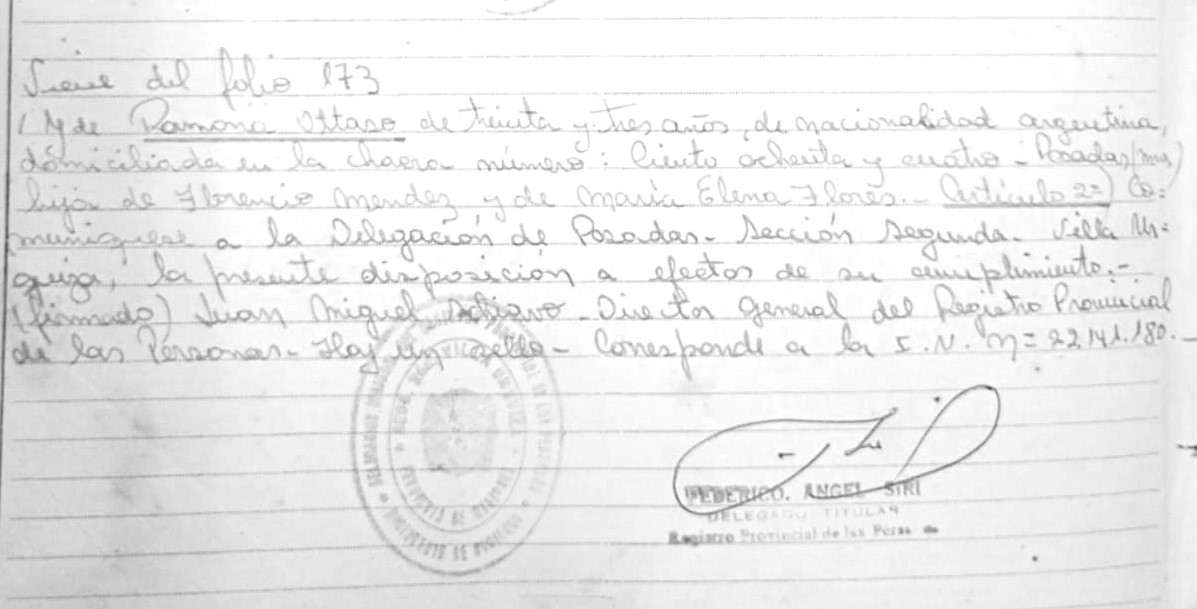 Viene del folio 173
/ y de Ramona Ottaso de treinta y tres años, de nacionalidad argentina,
domiciliada en la chacra número: Ciento ochenta y cuatro - Posadas (mns)
hija de Florencio Mendez y de María Elena Flores.- Artículo 2=) Co=
muníquese a la Delegación de Posadas- Sección Segunda- Villa Ur=
quiza, la presente disposición a efectos de su cumplimiento.-
(firmado) Juan Miguel - Director General del Registro Provincial
de las Personas- Hay un sello- Corresponde a la I.N. n= 22.141.180.-
FEDERICO. ANGEL SIRI
DELEGADO TITULAR
Registro Provincial de las Pers